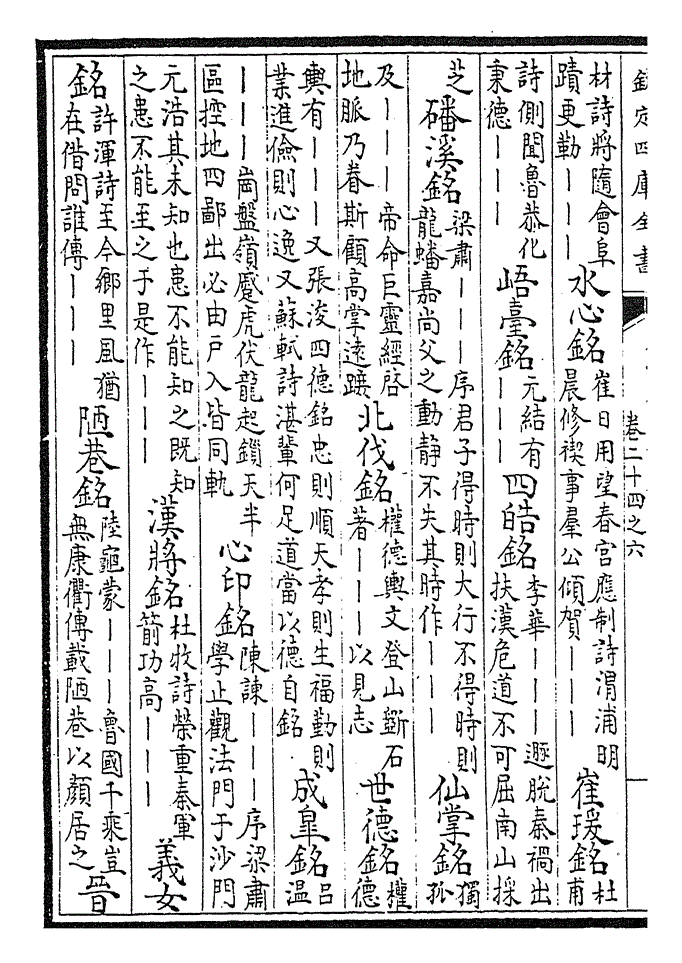 欽定四庫全書
卷二十四之六
材詩將隨會阜蹟更勤｜｜｜水心銘崔日用望春宮應制詩渭浦明晨修禊事羣公傾賀｜｜｜崔瑗銘杜甫
詩側聞魯恭化秉德｜｜｜峿臺銘元結有｜｜｜四皓銘李華｜｜｜遯脫秦禍出扶漢危道不可屈南山採
芝磻溪銘梁肅｜｜｜序君子得時則大行不得時則龍蟠嘉尚父之動靜不失其時作｜｜｜仙掌銘獨孤
及｜｜｜帝命巨靈經啓地脈乃眷斯顧高掌遠蹠北伐銘權德輿文登山斲石著｜｜｜以見志世德銘權德
輿有｜｜｜又張浚四德銘忠則順天孝則生福勤則業進儉則心逸又蘇軾詩湛輩何足道當以德自銘成臯銘吕温
｜｜｜崗盤嶺蹙虎伏龍起鎖天半區控地四鄙出必由戶入皆同軌心印銘陳諫｜｜｜序梁肅學止觀法門于沙門
元浩其未知也患不能知之既知之患不能至之于是作｜｜｜漢將銘杜牧詩榮重秦軍箭功高｜｜｜義女
銘許渾詩至今鄉里風猶在借問誰傳｜｜｜陋巷銘陸龜蒙｜｜｜魯國千乘豈無康衢傳載陋巷以顏居之晉